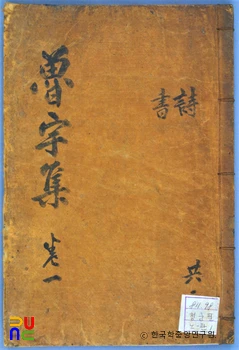 魯宇集
卷一
詩
書
共
PUNE
ⓒ 한국학중앙연구원